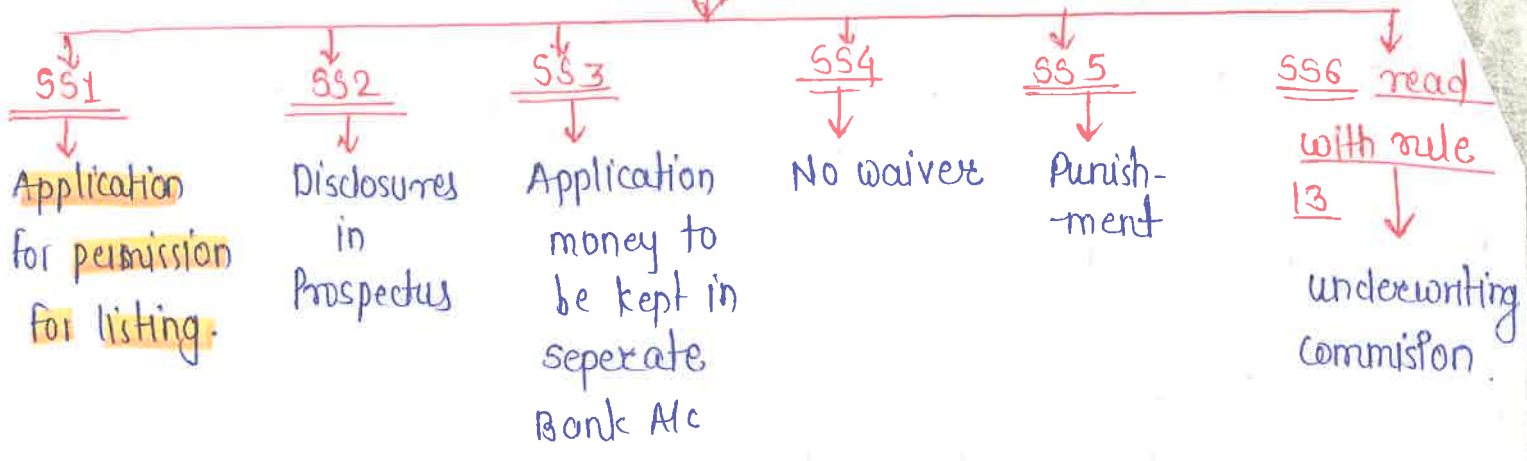 SS1
Application
for permission
for listing.
SS2
Disclosures
in
Prospectus
SS3
Application
money to
be kept in
seperate
Bank A/c
SS4
No waiver
SS5
Punish-
-ment
SS6 read
with rule
13
underwriting
Commision.